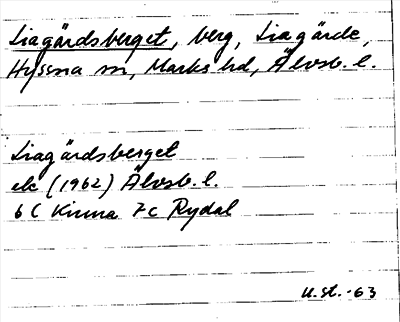 Liagärdsberget, berg, Liagärde,
Hyssna sn, Marks hd, Älvsb. l.
Liagärdsberget
ek (1962) Älvsb. l.
6 C Kinna 7c Rydal
U.st. -63